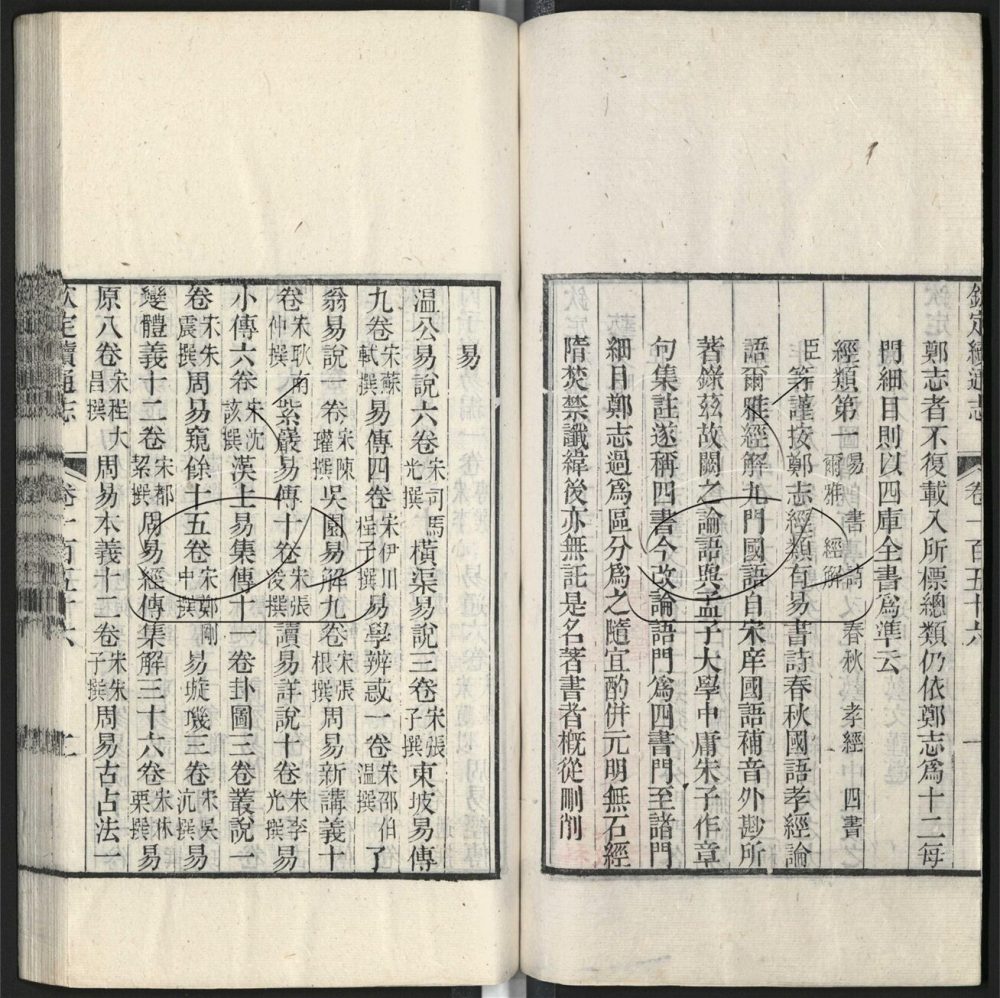 欽定續通志 卷一百五十六 一
鄭志者不復載入所標總類仍依鄭志爲十二每
門細目則以四庫全書爲準云
經類第一 易 書 詩 春秋 孝經 四書 爾雅 經解
臣等謹按鄭志經類有易書詩春秋國語孝經論
語爾雅經解九門國語自宋庠國語補音外尠所
著錄茲故闕之論語與孟子大學中庸朱子作章
句集註遂稱四書今改論語門爲四書門至諸門
細目鄭志過爲區分爲之隨宜酌併元明無石經
隋焚禁讖緯後亦無託是名著書者概從刪削
易
溫公易說六卷宋司馬光撰橫渠易說三卷宋張子撰東坡易傳
九卷宋蘇軾撰易傳四卷宋伊川程子撰易學辨惑一卷宋邵伯溫撰了
翁易說一卷宋陳瓘撰吳園易解九卷宋張根撰周易新講義十
卷宋耿南仲撰紫巖易傳十卷宋張浚撰讀易詳說十卷宋李光撰易
小傳六卷宋沈該撰漢上易集傳十一卷卦圖三卷叢說一
卷宋朱震撰周易窺餘十五卷宋鄭剛中撰易璇璣三卷宋吳沆撰易
變體義十二卷宋都絜撰周易經傳集解三十六卷宋林栗撰易
原八卷宋程大昌撰周易本義十二卷宋朱子撰周易古占法一
欽定續通志 卷一百五十六 二